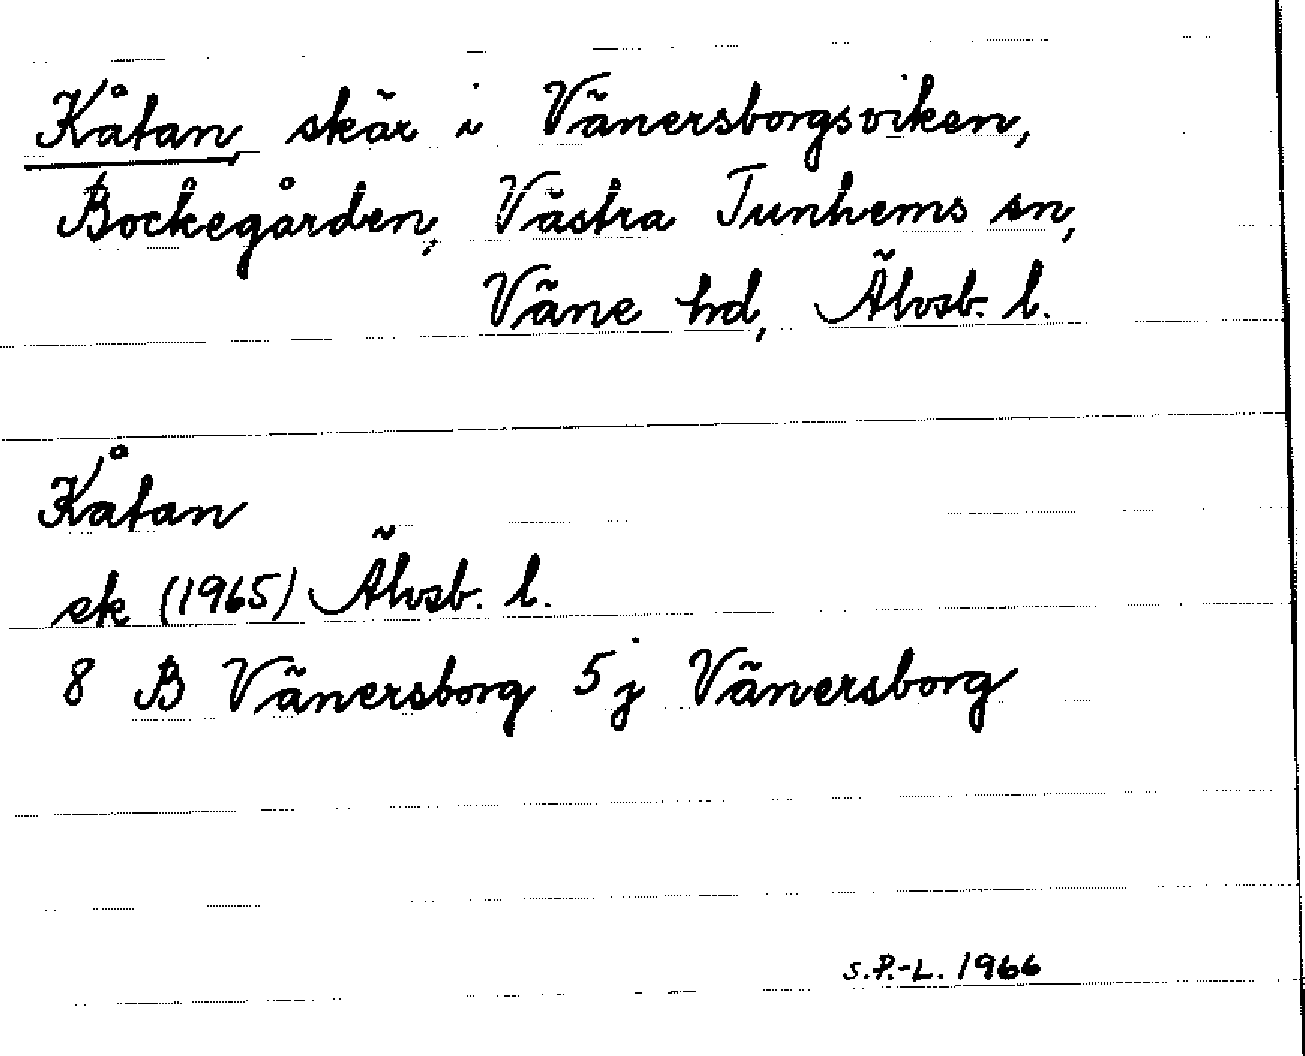 Kåtan, skär i Vänersborgsviken,
Bockegården, Västra Tunhems sn,
Väne hd, Älvsb. l.
Kåtan
ek (1965) Älvsb. l.
8 B Vänersborg 5 j Vänersborg
S.P.-L. 1966